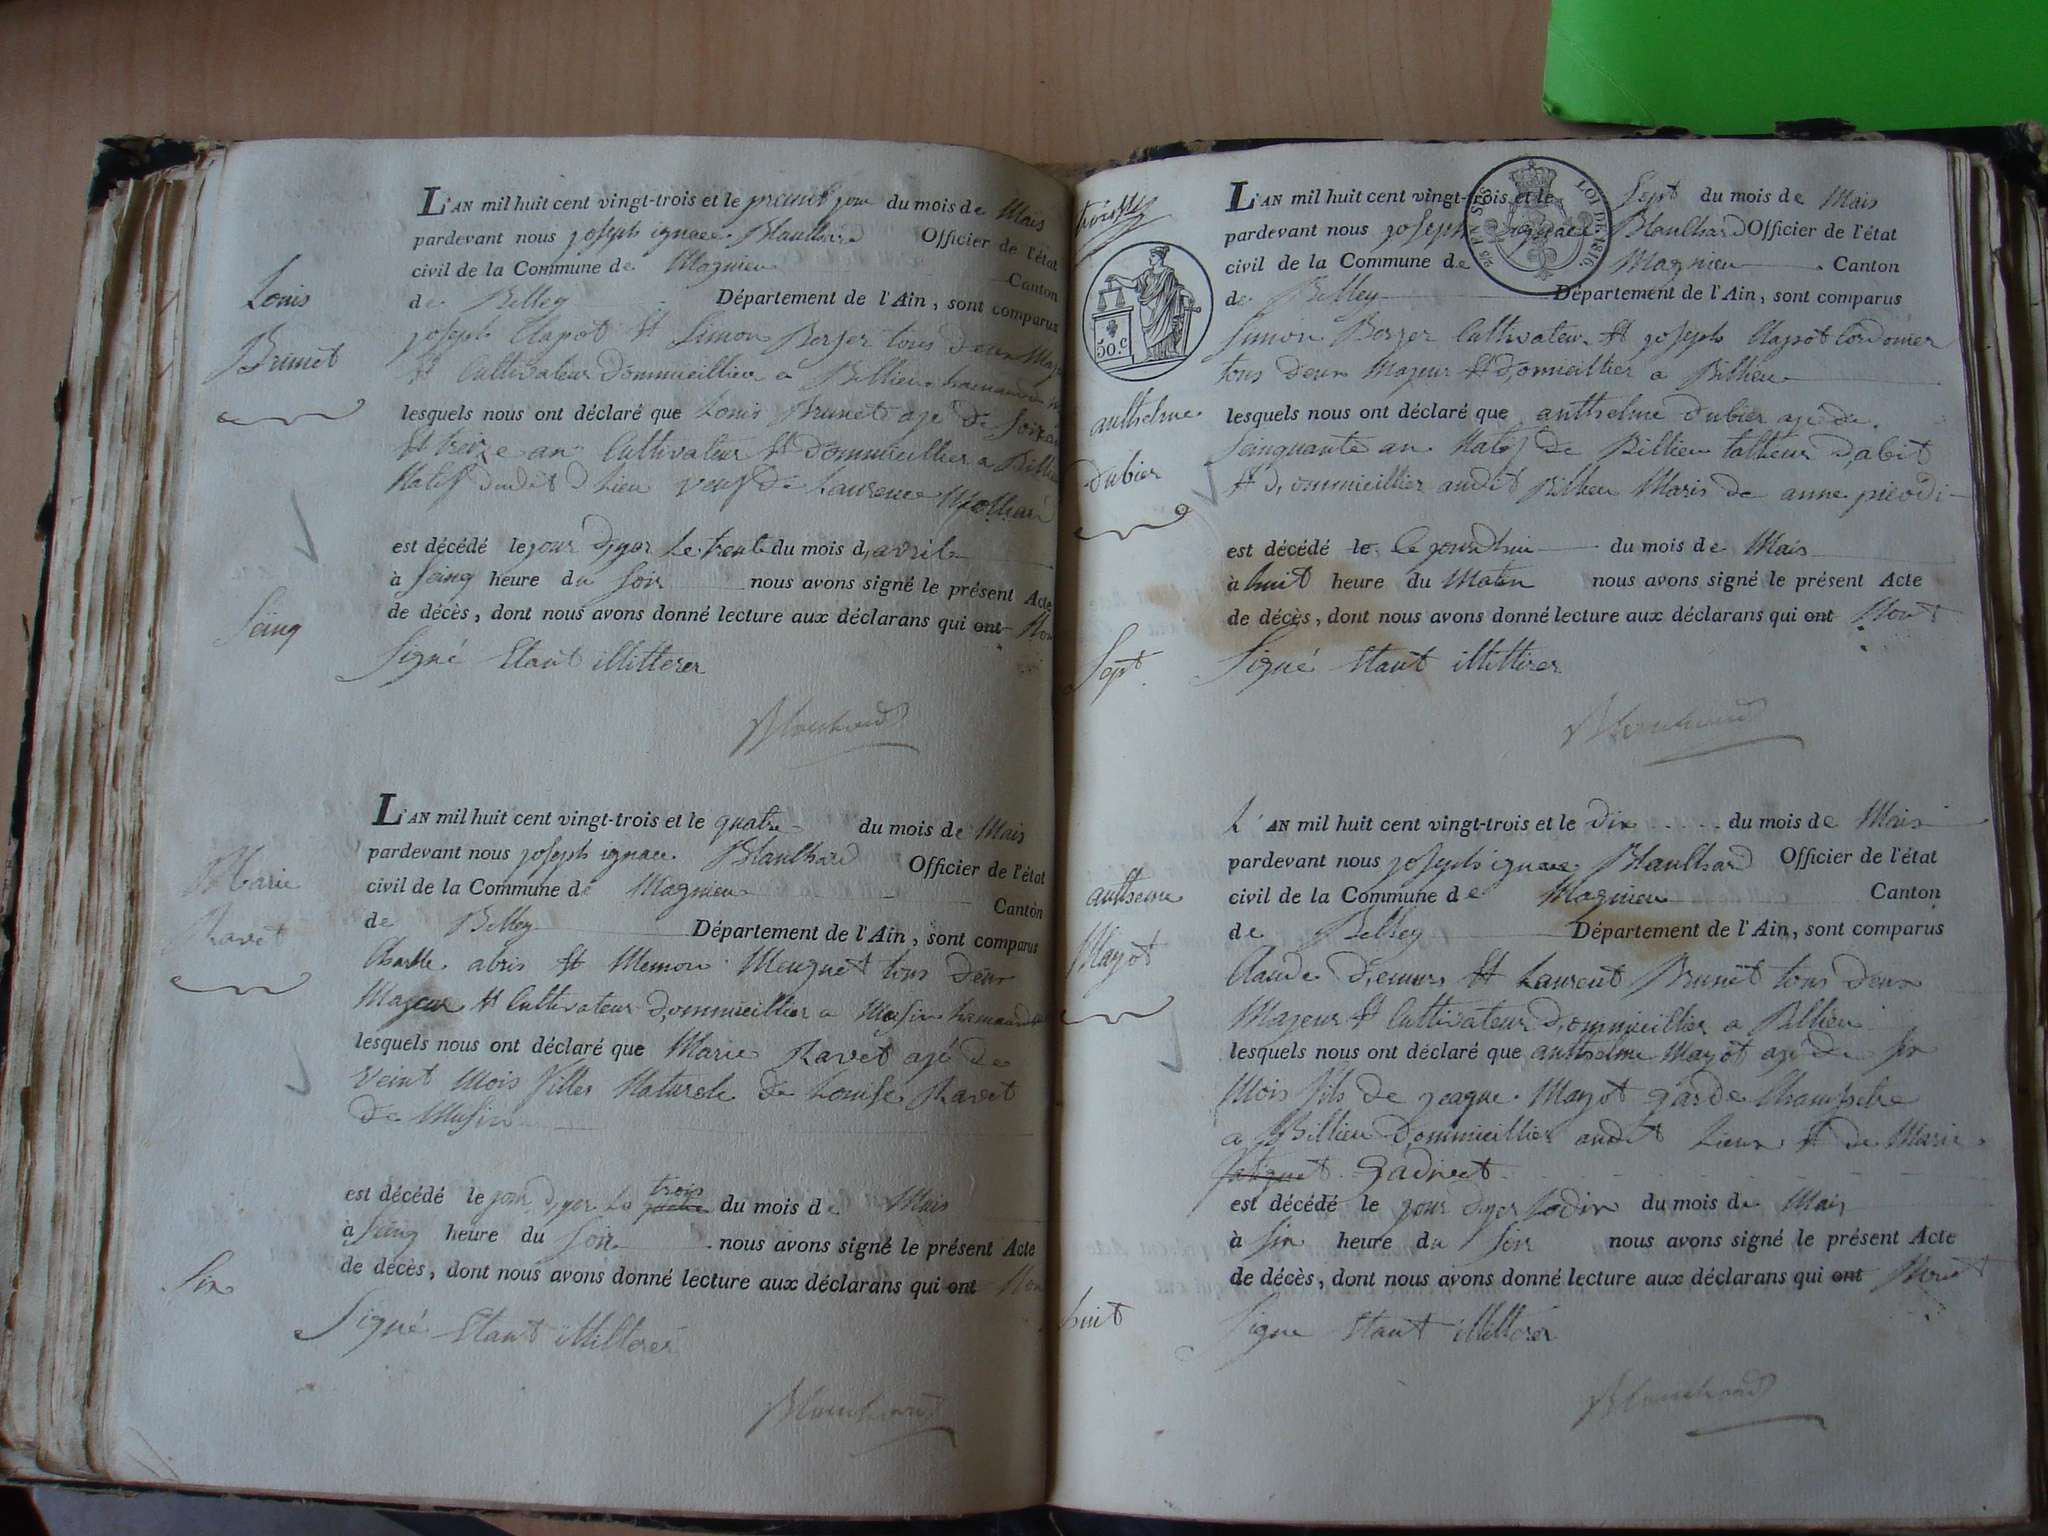 L'AN mil huit cent vingt-trois et le premiet jour du mois de Mais
pardevant nous joseph ignace Blanchard Officier de l'état
civil de la Commune de Magnieu Canton
de Belley Département de l'Ain, sont comparus
joseph Clapot et Simon Berger tous deux Maj
et Cultivateur d'ommieillier a Billieu hamaud
lesquels nous ont déclaré que Louis Brunet agé de Soixan
et treize an Cultivateur et d'ommieillier a Billieu
Natif dudit Lieu veuf de Laurence
est décédé le jour d'yer le trente du mois d'avril
à Seinq heure du Soir nous avons signé le présent Acte
de décès, dont nous avons donné lecture aux déclarans qui ont Non
Signé Etant illitterer
Blanchard
Louis
Brunet
Seinq
L'AN mil huit cent vingt-trois et le quatre du mois de Mais
pardevant nous joseph ignace Blanchard Officier de l'état
civil de la Commune de Magnieu Canton
de Belley Département de l'Ain, sont comparus
Charle abris et Memon Meugnet tous deux
Majeur et Cultivateur d'ommieillier a Musin hamaud
lesquels nous ont déclaré que Marie Ravet agé de
veint Mois filles Naturele de Louise Ravet
de Musin
est décédé le jour d'yer le trois du mois de Mais
à Seinq heure du Soir nous avons signé le présent Acte
de décès, dont nous avons donné lecture aux déclarans qui ont Non
Signé Etant illitterer
Blanchard
Marie
Ravet
Six
50.c
25 EN SUS
LOI DE 1816.
L'AN mil huit cent vingt-trois et le Sept du mois de Mais
pardevant nous joseph ignace Blanchard Officier de l'état
civil de la Commune de Magnieu Canton
de Belley Département de l'Ain, sont comparus
Simon Berger Cultivateur et joseph Clapot Cordonier
tous deux Majeur et d'omieillier a Billieu
lesquels nous ont déclaré que anthelme dubier agé de
Seinquante an Natif de Billieu talieur d'abit
et d'ommieillier audit Billieu Maris de anne
est décédé le Ce jourdhui du mois de Mais
à huit heure du Matin nous avons signé le présent Acte
de décès, dont nous avons donné lecture aux déclarans qui ont Nont
Signé Etant illitterer
Blanchard
anthelme
dubier
Sept
L'AN mil huit cent vingt-trois et le dix du mois de Mais
pardevant nous joseph ignace Blanchard Officier de l'état
civil de la Commune de Magnieu Canton
de Belley Département de l'Ain, sont comparus
Claude et Laurent Brunet tous deux
Majeur et Cultivateur d'ommieillier a Billieu
lesquels nous ont déclaré que anthelme Mayot agé de Six
Mois fils de jeaque Mayot garde Champetre
a Billieu d'ommieillier audit Lieux et de Marie
est décédé le jour d'yer du mois de Mais
à Six heure du Soir nous avons signé le présent Acte
de décès, dont nous avons donné lecture aux déclarans qui ont Nont
Signe Etant illitterer
Blanchard
anthelme
Mayot
huit